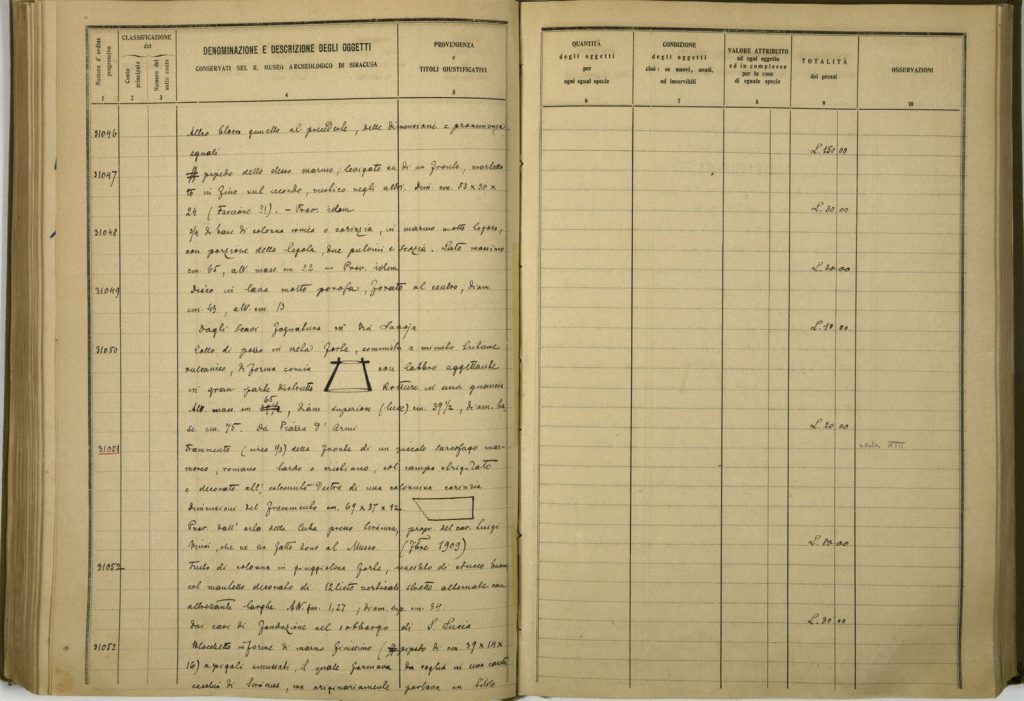 Numero d'ordine progressivo
CLASSIFICAZIONE
del
Conto principale
Numero del sotto conto
DENOMINAZIONE E DESCRIZIONE DEGLI OGGETTI
CONSERVATI NEL R. MUSEO ARCHEOLOGICO DI SIRACUSA
PROVENIENZA
e
TITOLI GIUSTIFICATIVI
1 2 3 4 5
31046 Altro blocco gemello al precedente, delle dimensioni e provenienza
eguali
31047 # pipedo dello stesso marmo, levigato su di un fronte,
to in fino sul secondo, rustico negli altri. Dim. cm. 83 x 30 x
24 ( ?!). – Prov. idem
31048 di base di colonna ionica o corinzia, in marmo molto logoro,
con porzione della, due e scozia. Lato massimo
cm. 65, alt. mass. cm. 22. – Prov. idem
31049 Disco in lava molto porosa, forato al centro, diam.
cm. 43, alt. cm. 13
Dagli scavi fognatura in Via Savoja
31050 Collo di pozzo in creta, commista a minuto
vulcanico, di forma conica con labbro aggettante
in gran parte distrutto Rotture in una
Alt. mass. cm 65, diam superiore (luce) cm. 39 1/2, diam. ba-
se cm. 75. Da Piazza D'Armi
31051 Frammento (circa 1/3) della fronte di un piccolo sarcofago mar-
moreo, romano tardo o cristiano, col campo strigilato
e decorato all' estremità destra di una colonnina corinzia
Dimensioni del frammento cm. 69 x 37 x 12.
Prov. dall' orto della Cuba presso Siracusa, propr. del cav. Luigi
, che ne ha fatto dono al Museo. (7bre 1909)
31052 Fusto di colonna in giuggiolena, rivestito di stucco
col mantello decorato di 12 liste verticali strette alternate con
altrettante larghe. Alt. m. 1,27, diam. sup. cm. 34.
Dai cavi di fondazione nel sobborgo di S. Lucia
31053 Blocchetto informe di marmo finissimo (# pipedo di cm 39 x 14 x
16) a spigoli smussati, il quale
di Siracusa, ma originariamente portava un titolo
QUANTITÀ
degli oggetti
per
ogni egual specie
CONDIZIONE
degli oggetti
cioè: se nuovi, usati,
od inservibili
VALORE ATTRIBUITO
ad ogni oggetto
ed in complesso
per le cose
di eguale specie
TOTALITÀ
dei prezzi
OSSERVAZIONI
6 7 8 9 10
L. 150 00
L. 30 00
L. 30 00
L. 10 00
L. 20 00
sala XII
L. 80 00
L. 30 00